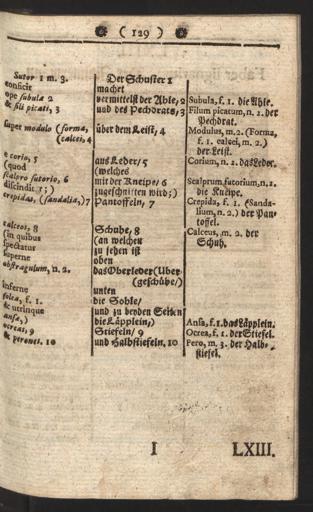 ( 129 )
Sutor 1 m. 3.
conficit
ope subulæ 2
& fili picati, 3
super modulo (forma,
(calcei, 4
e corio, 5
(quod
scalpro sutorio, 6
discinditur;)
crepidas, (sandalia,) 7
calceos, 8
(in quibus
spectatur
superne
obstragulum, n. 2.
inferne
solea, f. 1.
& utrinque
ansæ,)
ocreas, 9
& perones. 10
Der Schuster 1
machet
vermittelst der Ahle, 2
und des Pechdrats, 3
über dem Leist, 4
aus Leder/ 5
(welches
mit der Kneipe/ 6
zugeschnitten wird;)
Pantoffeln, 7
Schuhe, 8
(an welchen
zu sehen ist
oben
das Oberleder (Uber-
(geschübe/)
unten
die Sohle/
und zu beyden Seiten
die Läpplein,)
Stiefeln/ 9
und Halbstiefeln. 10
Subula, f. 1. die Ahle.
Filum picatum, n. 2. der
Pechdrat.
Modulus, m. 2. (Forma,
f. 1. calcei, m. 2.)
der Leist.
Corium, n. 2. das Leder.
Scalprum sutorium, n. 2.
die Kneipe.
Crepida, f. 1. (Sanda-
lium, n. 2.) der Pan-
toffel.
Calceus, m. 2. der
Schuh.
Ansa, f. 1. das Läpplein.
Ocrea, f. 1. der Stiefel.
Pero, m. 3. der Halb-
stiefel.
I
LXIII.